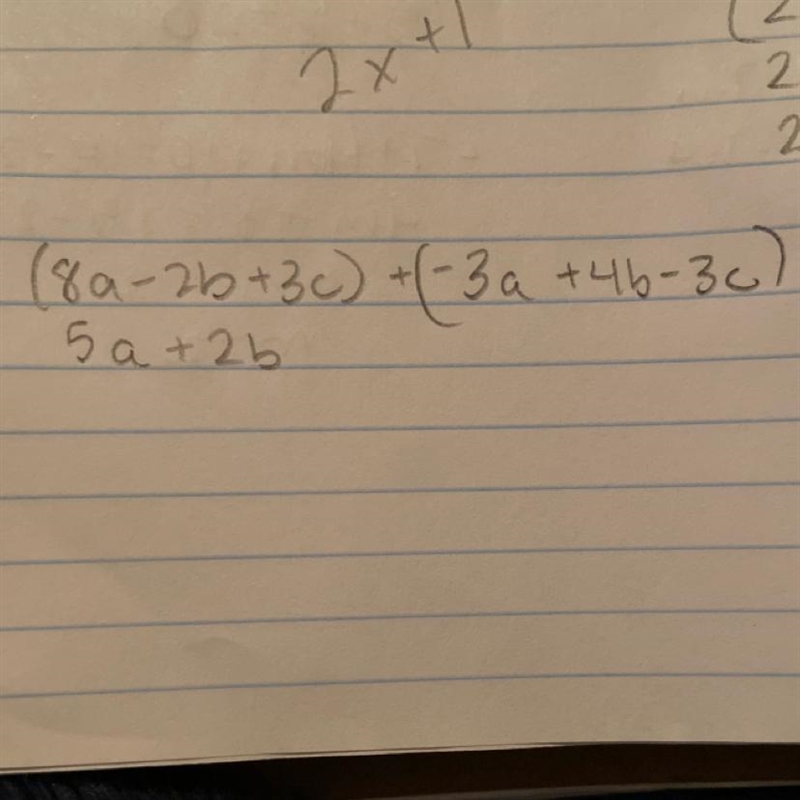 2x^+1
(2
2
2
(8a-2b+3c)+(-3a+4b-3c)
5a+2b